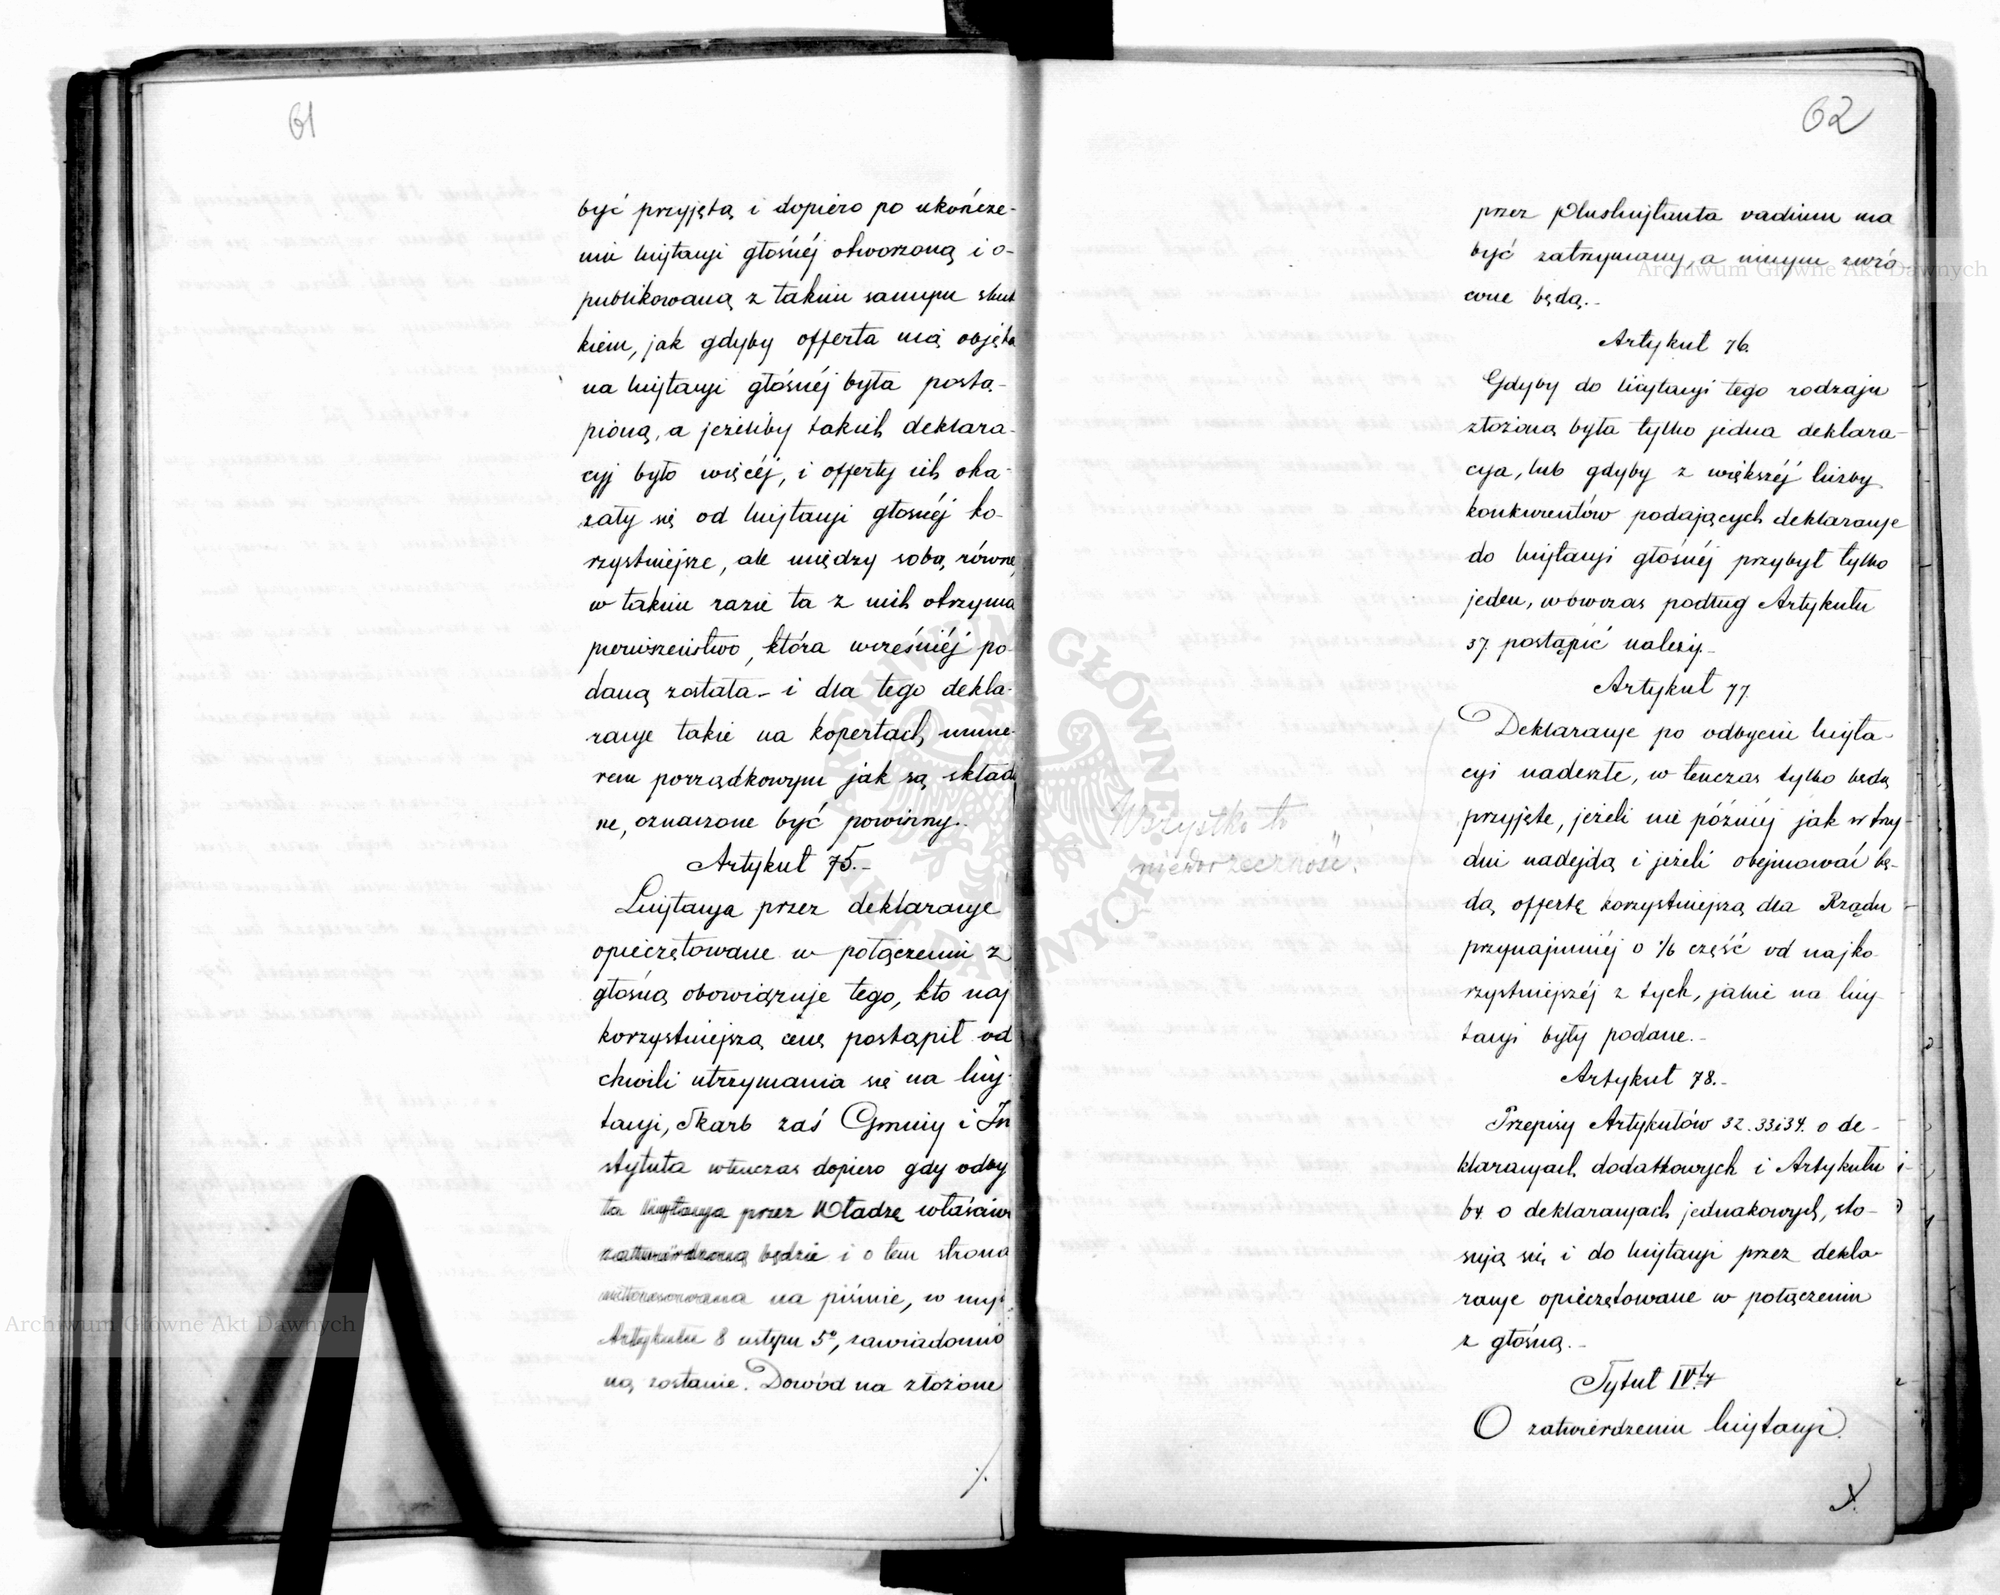 61
być przyjętą i dopiero po ukończe-
niu licytacyi głośnéj otworzoną i o-
publikowaną z takim samym skut
kiem, jak gdyby offerta nią objęta
na licytacyi głośnéj była postą-
pioną, a jeżeliby takich deklara-
cyj było więcéj, i offerty ich oka-
zały się od licytacyi głośnéj ko-
rzystniejsze, ale między sobą równe,
w takim razie ta z nich otrzyma
pierwszeństwo, która wcześniéj po-
daną została – i dla tego dekla-
racye takie na kopertach, nume-
rem porządkowym jak są składa
ne, oznaczone być powinny.-
Artykuł 75.-
Licytacya przez deklaracye
opieczętowane w połączeniu z
głośną obowiązuje tego, kto naj
korzystniejszą cenę postąpił od
chwili utrzymania się na licy-
tacyi, Skarb zaś Gminy i In
stytuta wtenczas dopiero gdy odby
ta licytacya przez Władzę właściwą
zatwierdzoną będzie i o tem strona
na piśmie, w myśl
Artykułu 8 ustępu 5º, zawiadomio
ną zostanie. Dowód na złożone
./.
62
przez pluslicytanta vadium ma
być zatrzymany, a innym zwró
cone będą.-
Artykuł 76.
Gdyby do licytacyi tego rodzaju
złożoną była tylko jedna deklara-
cya, lub gdyby z większéj liczby
konkurentów podających deklaracye
do licytacyi głośnéj przybył tylko
jeden, wówczas podług Artykułu
37. postąpić należy.-
Artykuł 77.
Deklaracye po odbyciu licyta-
cyi nadeszłe, w tenczas tylko będą
przyjęte, jeżeli nie późniéj jak w trzy
dni nadejdą i jeżeli obejmować bę-
dą offertę korzystniejszą dla Rządu
przynajmniéj o 1/6 część od najko-
rzystniejszéj z tych, jakie na licy-
tacyi były podane.-
Wszystko to
niedorzeczność!
Artykuł 78.-
Przepisy Artykułów 32. 33 i 34. o de-
klaracyach dodatkowych i Artykułu
64. o deklaracyach jednakowych, sto-
sują się i do licytacyi przez dekla-
racye opieczętowane w połączeniu
z głośną.-
Tytuł IV.ty
O zatwierdzeniu licytacyi.
./.
Archiwum Główne Akt Dawnych
Archiwum Główne Akt Dawnych
ARCHIWUM GŁÓWNE AKT DAWNYCH